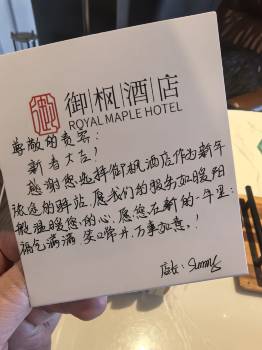 御枫酒店
ROYAL MAPLE HOTEL
尊敬的贵客:
新春大吉!
感谢您选择御枫酒店作为新年
旅途的驿站,愿我们的服务如暖阳
般温暖您的心,愿您在新的一年里:
福气满满 笑口常开,万事如意!
店长: Sunny